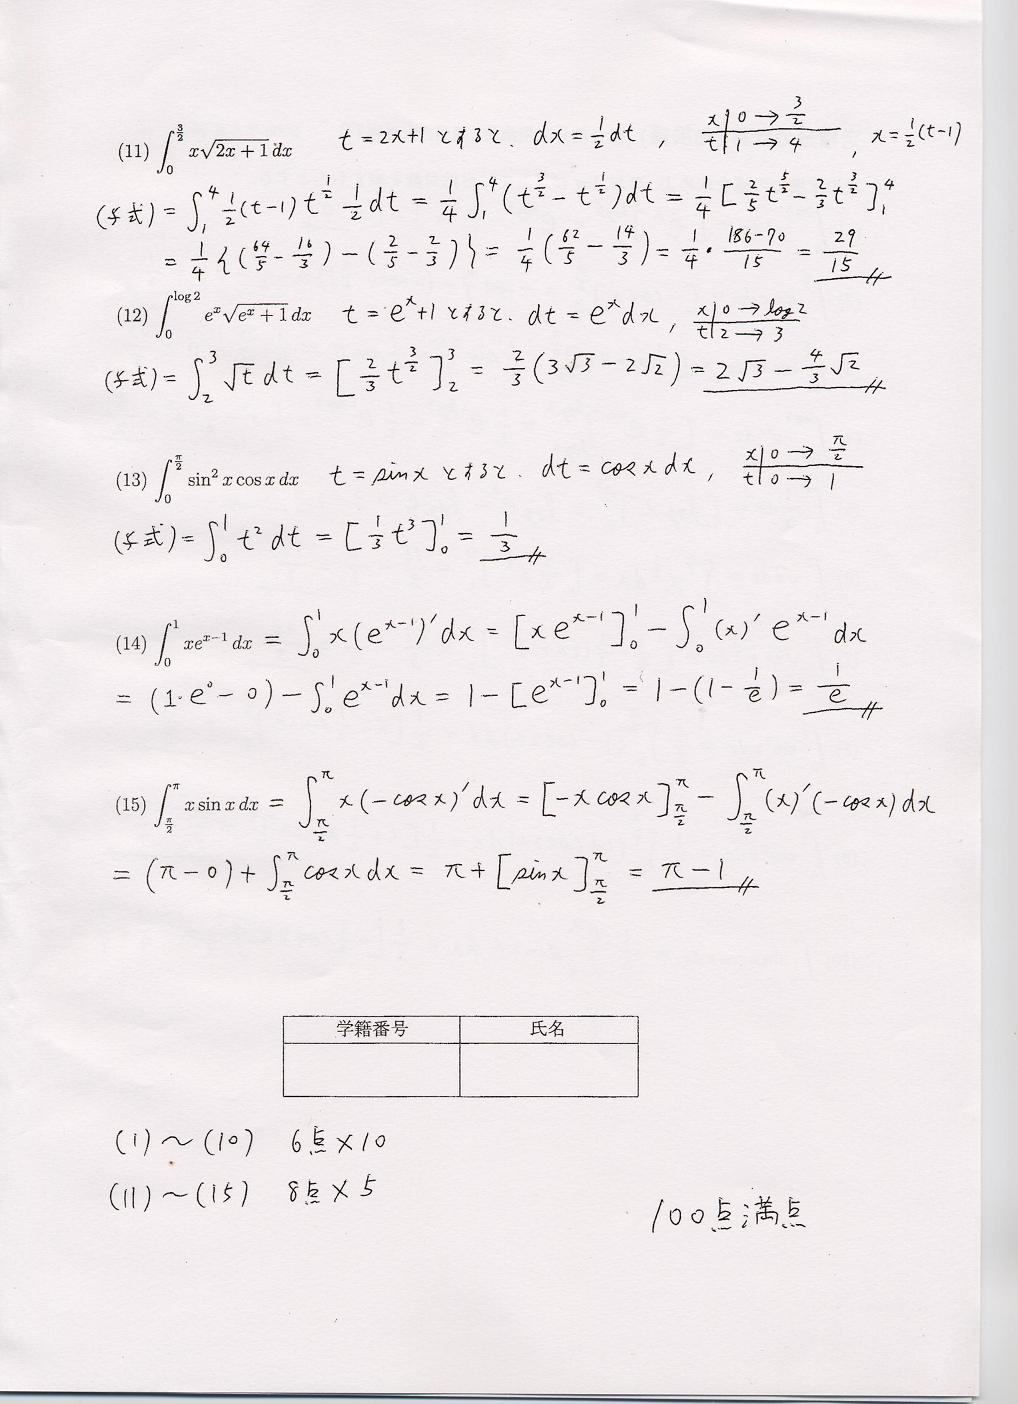 (11) ∫_0^{3/2} x√(2x+1) dx　t=2x+1とすると、dx=1/2 dt, x|0→3/2, x=1/2(t-1)
t|1→4
(与式)=∫_1^4 1/2(t-1)t^{1/2} 1/2 dt = 1/4∫_1^4(t^{3/2}-t^{1/2})dt = 1/4[2/5 t^{5/2}-2/3 t^{3/2}]_1^4
= 1/4{(64/5-16/3)-(2/5-2/3)} = 1/4(62/5-14/3) = 1/4・(186-70)/15 = 29/15
(12) ∫_0^{log 2} e^x√(e^x+1) dx　t=e^x+1とすると、dt=e^x dx, x|0→log2
t|2→3
(与式)=∫_2^3 √t dt = [2/3 t^{3/2}]_2^3 = 2/3(3√3-2√2) = 2√3-4/3√2
(13) ∫_0^{π/2} sin^2 x cos x dx　t=sin xとすると、dt=cos x dx, x|0→π/2
t|0→1
(与式)=∫_0^1 t^2 dt = [1/3 t^3]_0^1 = 1/3
(14) ∫_0^1 xe^{x-1} dx = ∫_0^1 x(e^{x-1})'dx = [xe^{x-1}]_0^1 - ∫_0^1 (x)' e^{x-1}dx
= (1・e^0-0)-∫_0^1 e^{x-1}dx = 1-[e^{x-1}]_0^1 = 1-(1-1/e) = 1/e
(15) ∫_{π/2}^π x sin x dx = ∫_{π/2}^π x(-cos x)'dx = [-x cos x]_{π/2}^π - ∫_{π/2}^π (x)'(-cos x)dx
= (π-0)+∫_{π/2}^π cos x dx = π+[sin x]_{π/2}^π = π-1
学籍番号　氏名
(1)〜(10) 6点×10
(11)〜(15) 8点×5
100点満点